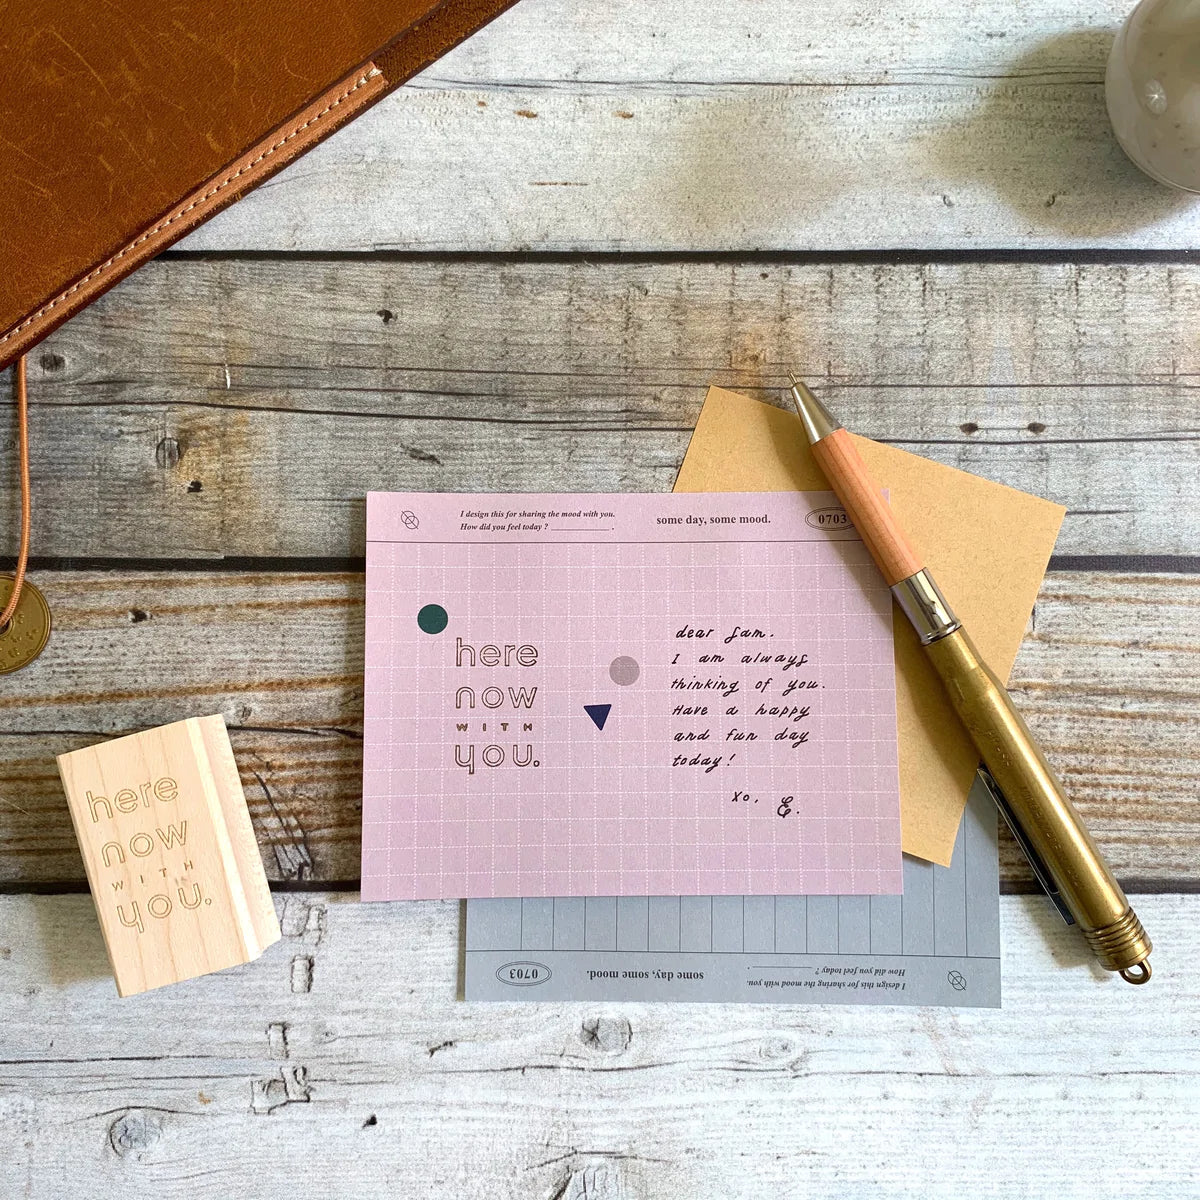 I design this for sharing the mood with you.
How did you feel today ? ____________ .
some day, some mood.
0703
here
now
WITH
you.
dear Sam.
I am always
thinking of you.
Have a happy
and fun day
today!
xo, E.
here
now
WITH
you.
I design this for sharing the mood with you.
How did you feel today ? ____________ .
some day, some mood.
0703